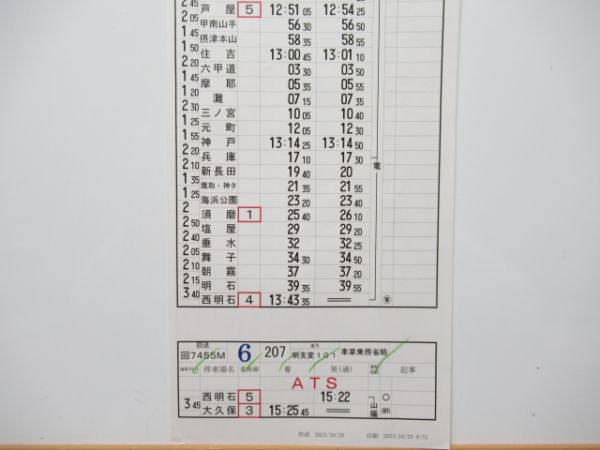 2 45
芦屋 5 12:51 05 12:54 25
2 05
甲南山手 56 30 56 50
1 50
摂津本山 58 35 58 55
1 50
住吉 13:00 45 13:01 10
2 20
六甲道 03 30 03 50
1 45
摩耶 05 35 05 55
1 20
灘 07 15 07 35
2 30
三ノ宮 10 05 10 40
1 25
元町 12 05 12 30
1 55
神戸 13:14 25 13:14 50
2 20
兵庫 17 10 17 30
2 10
新長田 19 40 20
1 35
鷹取・神タ 21 35 21 55
1 25
海浜公園 23 20 23 40
2
須磨 1 25 40 26 10
2 50
塩屋 29 29 20
2 05
垂水 32 32 25
2 05
舞子 34 30 34 50
2 10
朝霧 37 37 20
2 15
明石 39 35 39 55
3 40
西明石 4 13:43 35
電
回送
回7455M 6 207 明支変101 車掌乗務省略
停車場名 着発線 着 発(通) 記事
ATS
西明石 5 15:22
3 45
大久保 3 15:25 45
山陽
作成 2023/10/20 印刷 2023/10/20 8:51